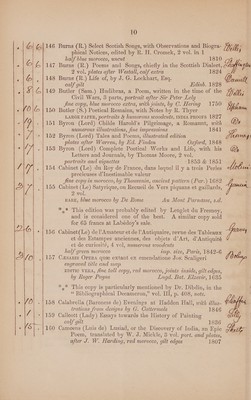 10
146 Burns (R.) Select Scotish Songs, with Observations and Biogra-
phical Notices, edited by R. H. Cromek, 2 vol. in 1
half blue morocco, uncut 1810
147 Burns (R.) Poems and Songs, chiefly in the Scottish Dialect,
2 vol. plates after Westall, calf extra 1824
148 Burns (R.) Life of, by J. G. Lockhart, Esq.
calf gilt Edinb. 1828
149 Butler (Sam.) Hudibras, a Poem, written in the time of the
Civil Wars, 3 parts, portrait after Sir Peter Lely
fine copy, blue morocco extra, with joints, by C. Hering 1750
150 Butler (S.) Posthumous Remains, with Notes by R. Thyer
LARGE PAPER, portraits & humorous woodcuts, INDIA PROOFS 1827
151 Byron (Lord) Childe Harold's Pilgrimage, a Romaunt, with
numerous illustrations, fine impressions 1841
152 Byron (Lord) Tales and Poems, illustrated edition
plates after Warren, by Ed. Finden Oxford, 1848
153 Byron (Lord) Complete Poetical Works and Life, with his
Letters and Journals, by Thomas Moore, 2 vol.
portraits and vignettes 1855 & 1851
154 Cabinet (Le) du Roy de France, dans lequel il y a trois Perles
precieuses d'Inestimable valeur
fine copy in morocco, by Thouvenin, ancient pattern (Par.) 1582
155 Cabinet (Le) Satyrique, ou Recueil de Vers piquans et gaillards,
2 vol.
RARE, blue morocco by De Rome Au Mont Parnasse, s.d.
*** This edition was probably edited by Lenglet du Fresnoy,
and is considered one of the best. A similar copy sold
for 65 francs at Labédoy's sale.
156 Cabinet (Le) de l'Amateur et de l'Antiquaire, revue des Tableaux
et des Estampes anciennes, des objets d'Art, d'Antiquité
et de curiosité, 4 vol. numerous woodcuts
half green morocco imp. 8vo, Paris, 1842-6
157 CÆSARIS OPERA QUÆ EXTANT ex emendatione Jos. Scaligeri
engraved title and map
EDITIO VERA, fine tall copy, red morocco, joints inside, gilt edges,
by Roger Payne Lugd. Bat. Elzevir, 1635
*** This copy is particularly mentioned by Dr. Dibdin, in the
"Bibliographical Decameron," vol. III, p. 408, note.
158 Calabrella (Baroness de) Evenings at Haddon Hall, with illus-
trations from designs by G. Cattermole 1846
159 Callcott (Lady) Essays towards the History of Painting
calf gilt 1836
160 Camoens (Luis de) Lusiad, or the Discovery of India, an Epic
Poem, translated by W. J. Mickle, 3 vol. port. and plates,
after J. W. Harding, red morocco, gilt edges 1807